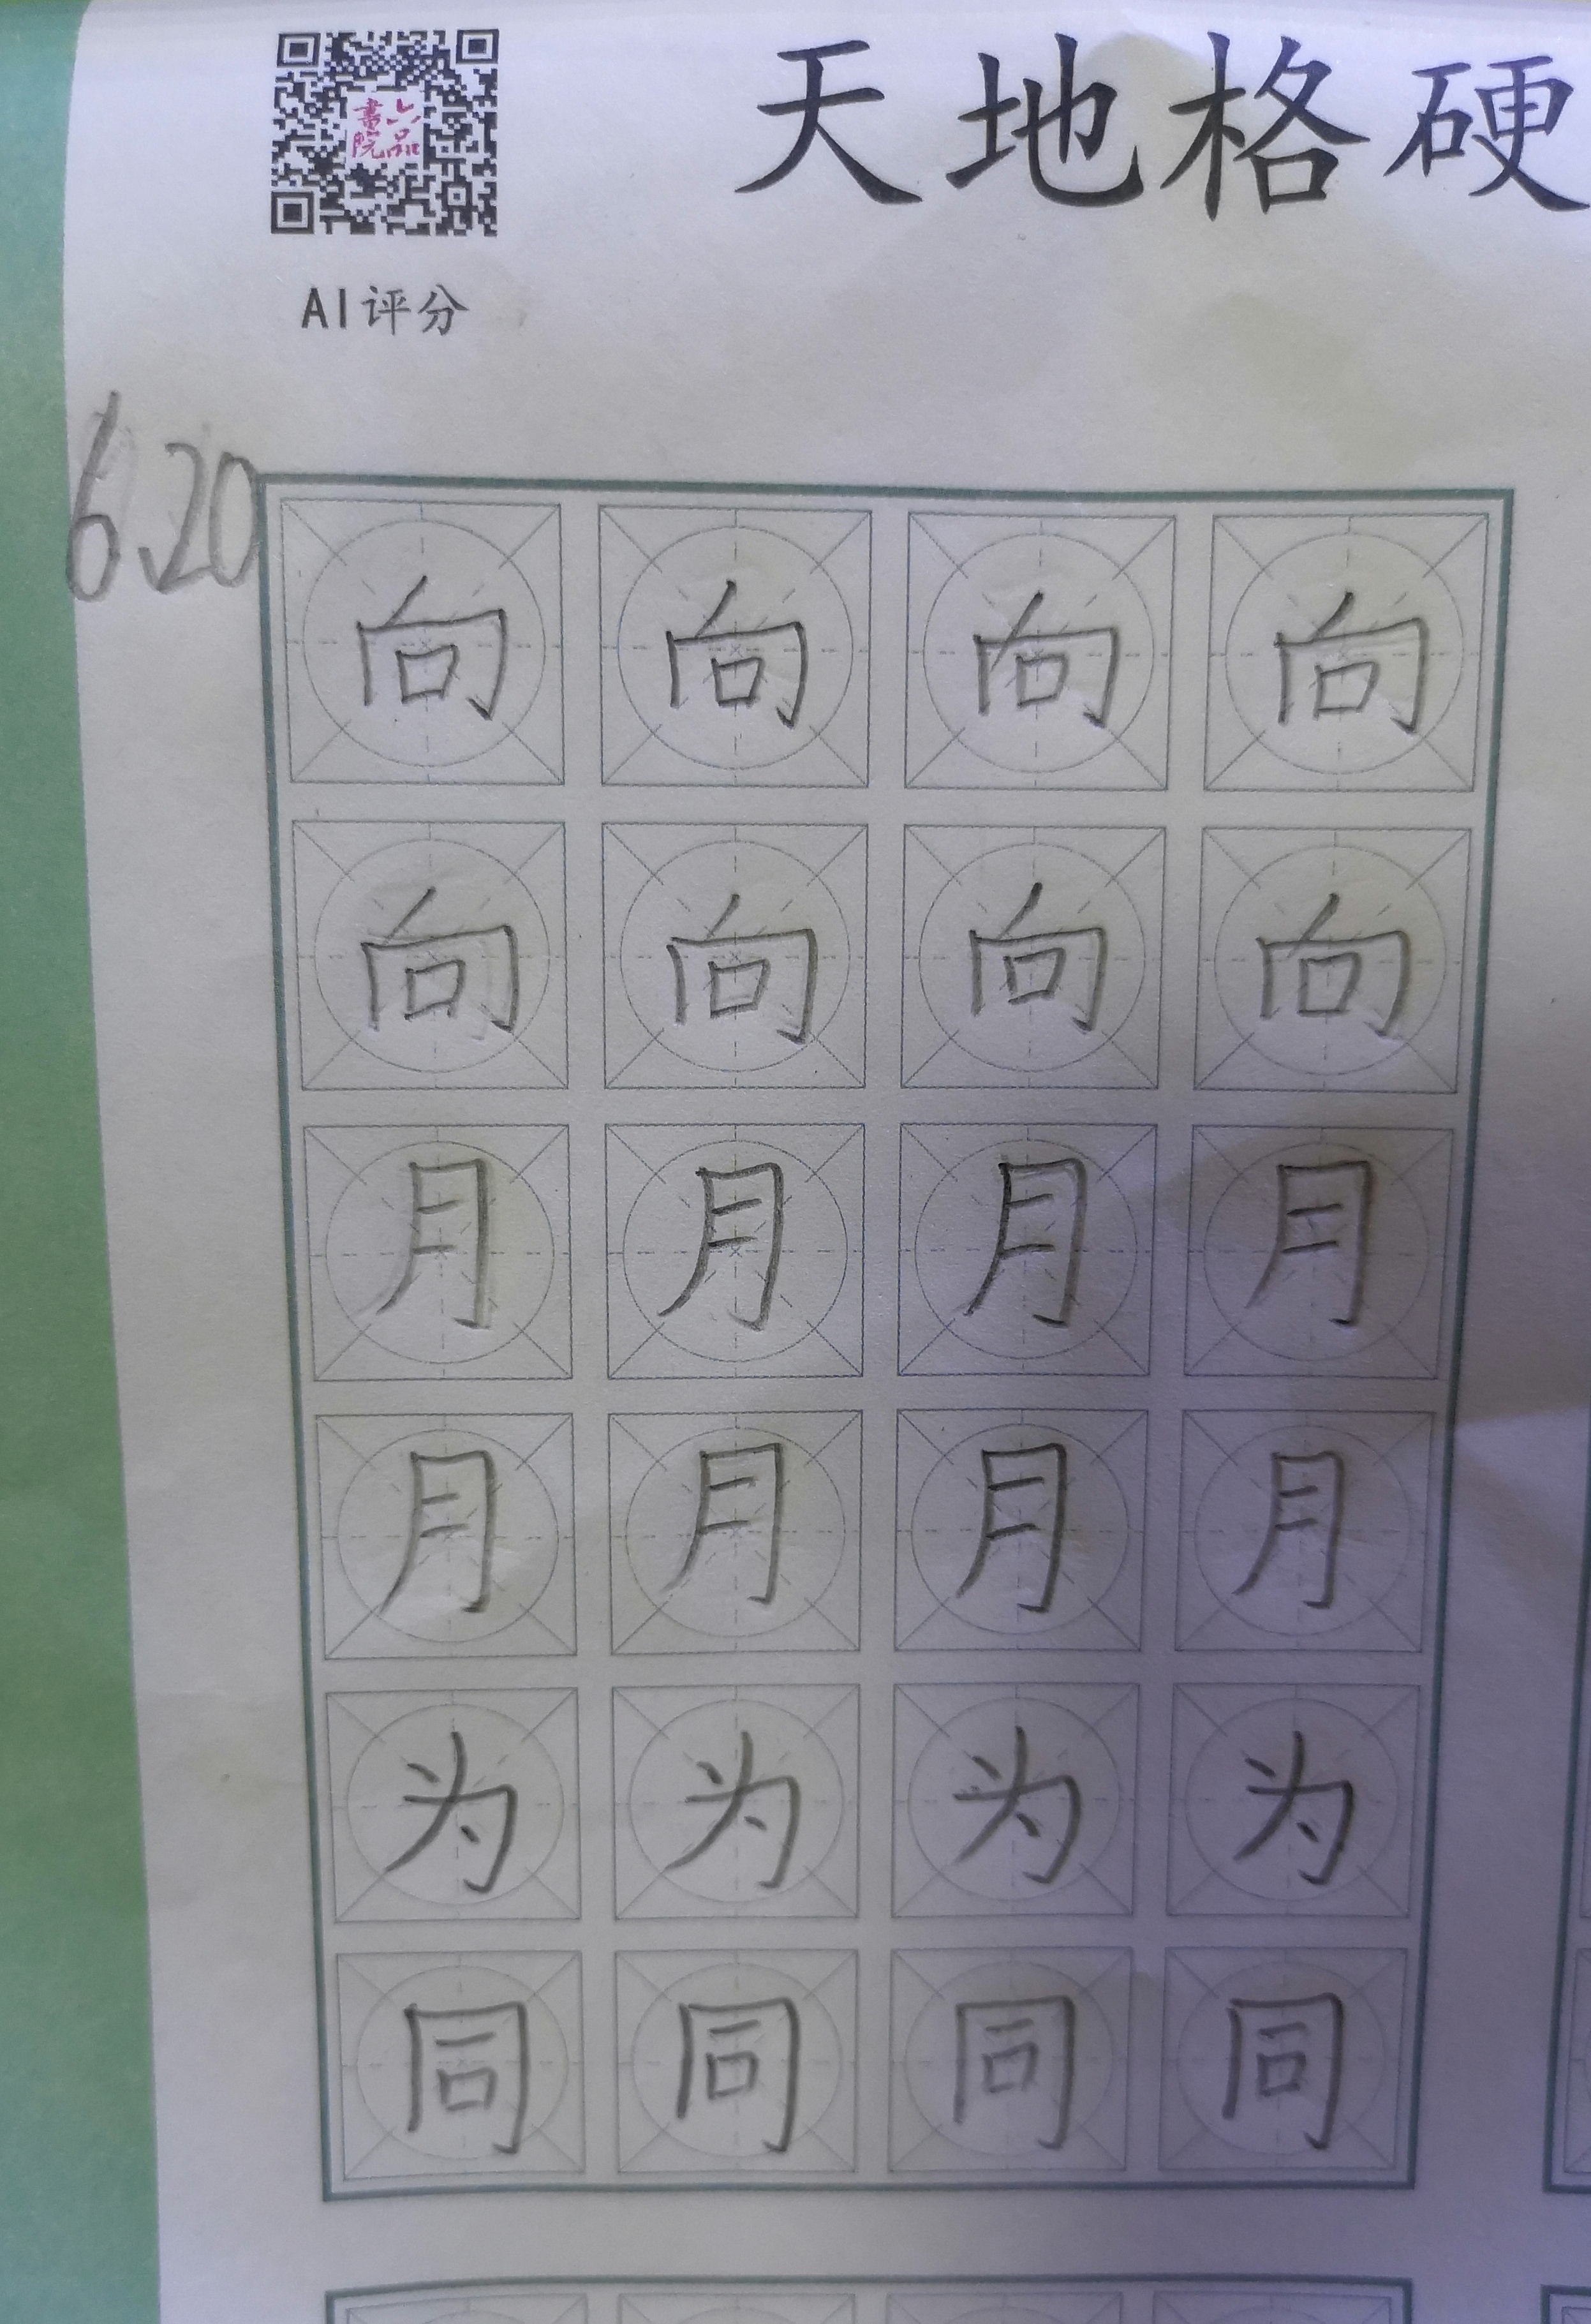 書六
院品
天地格硬
AI评分
6.20
向向向向
向向向向
月月月月
月月月月
为为为为
同同同同